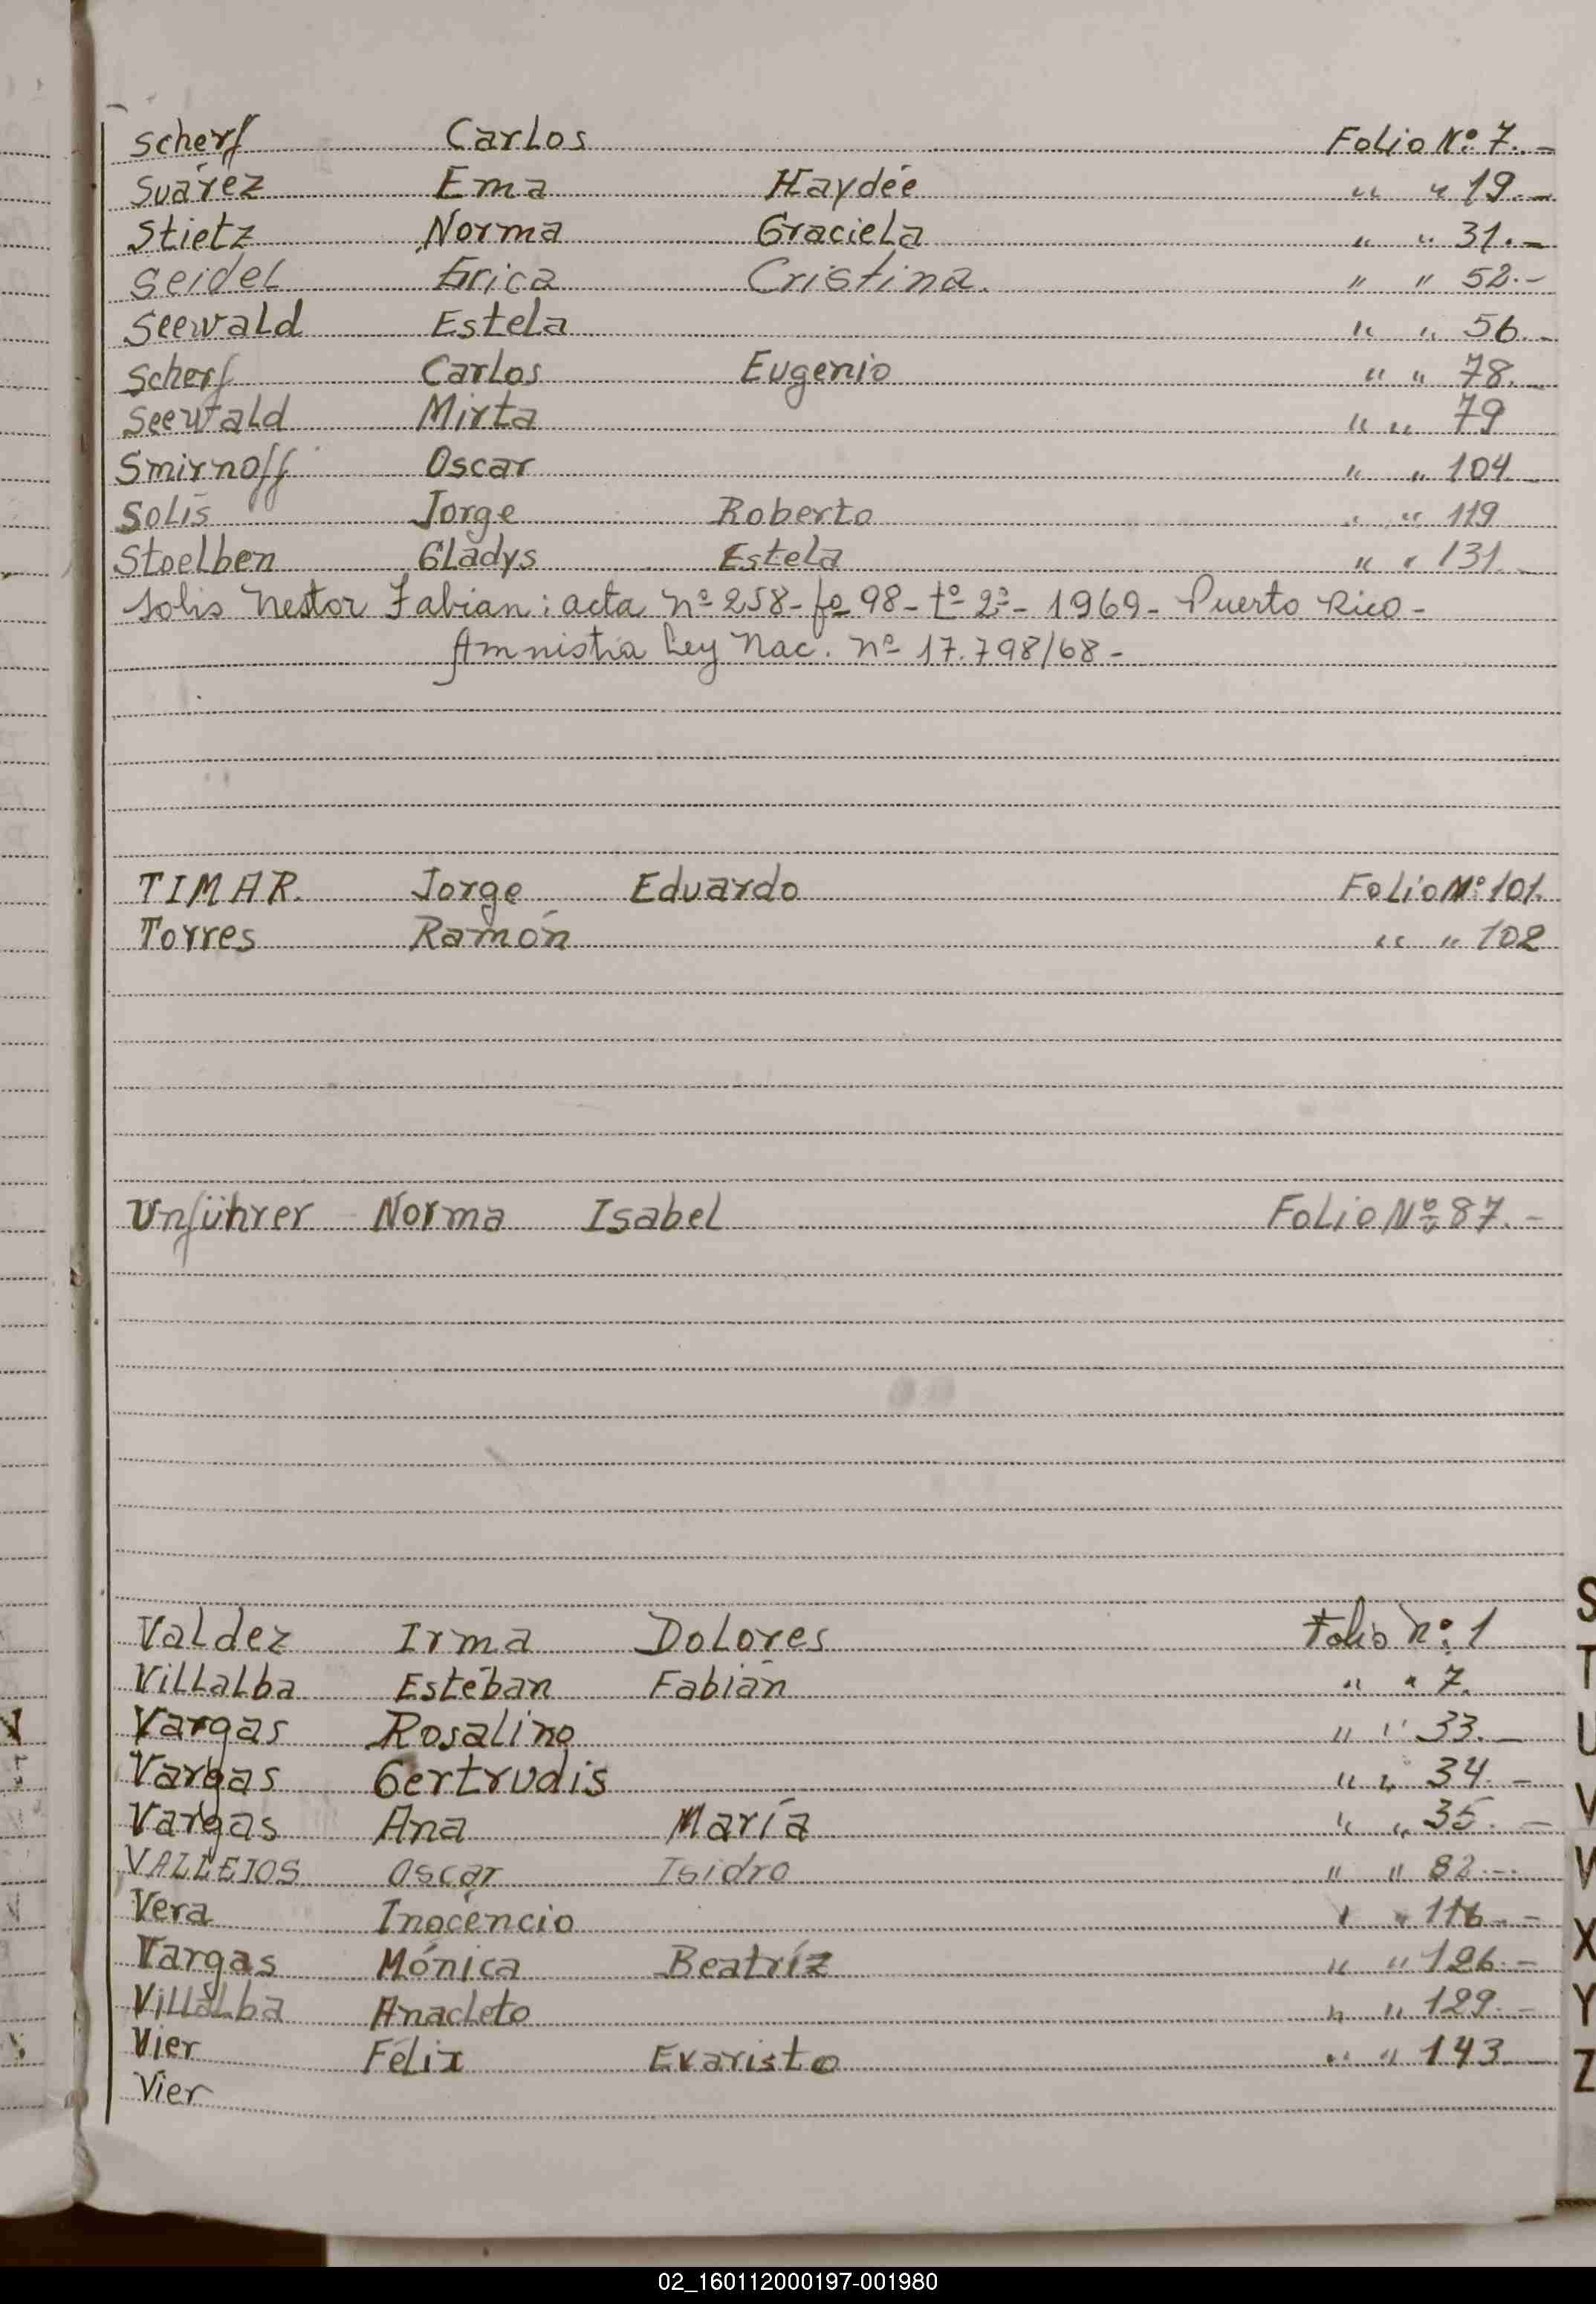 Scherf Carlos Folio Nº 7.-
Suárez Ema Haydée " " 19.-
Stietz Norma Graciela " " 31.-
Seidel Erica Cristina. " " 52.-
Seewald Estela " " 56.-
Scherf Carlos Eugenio " " 78.-
Seewald Mirta " " 79
Smirnoff Oscar " " 104.-
Solís Jorge Roberto " " 119
Stoelben Gladys Estela " " 131.-
Solis Nestor Fabian: acta nº 258- fº 98- tº 2º- 1969- Puerto Rico-
Amnistia Ley Nac. nº 17.798/68-
TIMAR. Jorge Eduardo Folio Nº 101.
Torres Ramón " " 102
Unführer Norma Isabel Folio Nº 87.-
Valdez Irma Dolores Folio Nº 1
Villalba Esteban Fabián " " 7.
Vargas Rosalino " " 33.-
Vargas Gertrudis " " 34.-
Vargas Ana María " " 35.-
VALLEJOS Oscar Isidro " " 82.-
Vera Inocencio " " 116.-
Vargas Mónica Beatríz " " 126.-
Villalba Anacleto " " 129.-
Vier Félix Evaristo " " 143
Vier
S
T
U
V
W
X
Y
Z
02_160112000197-001980